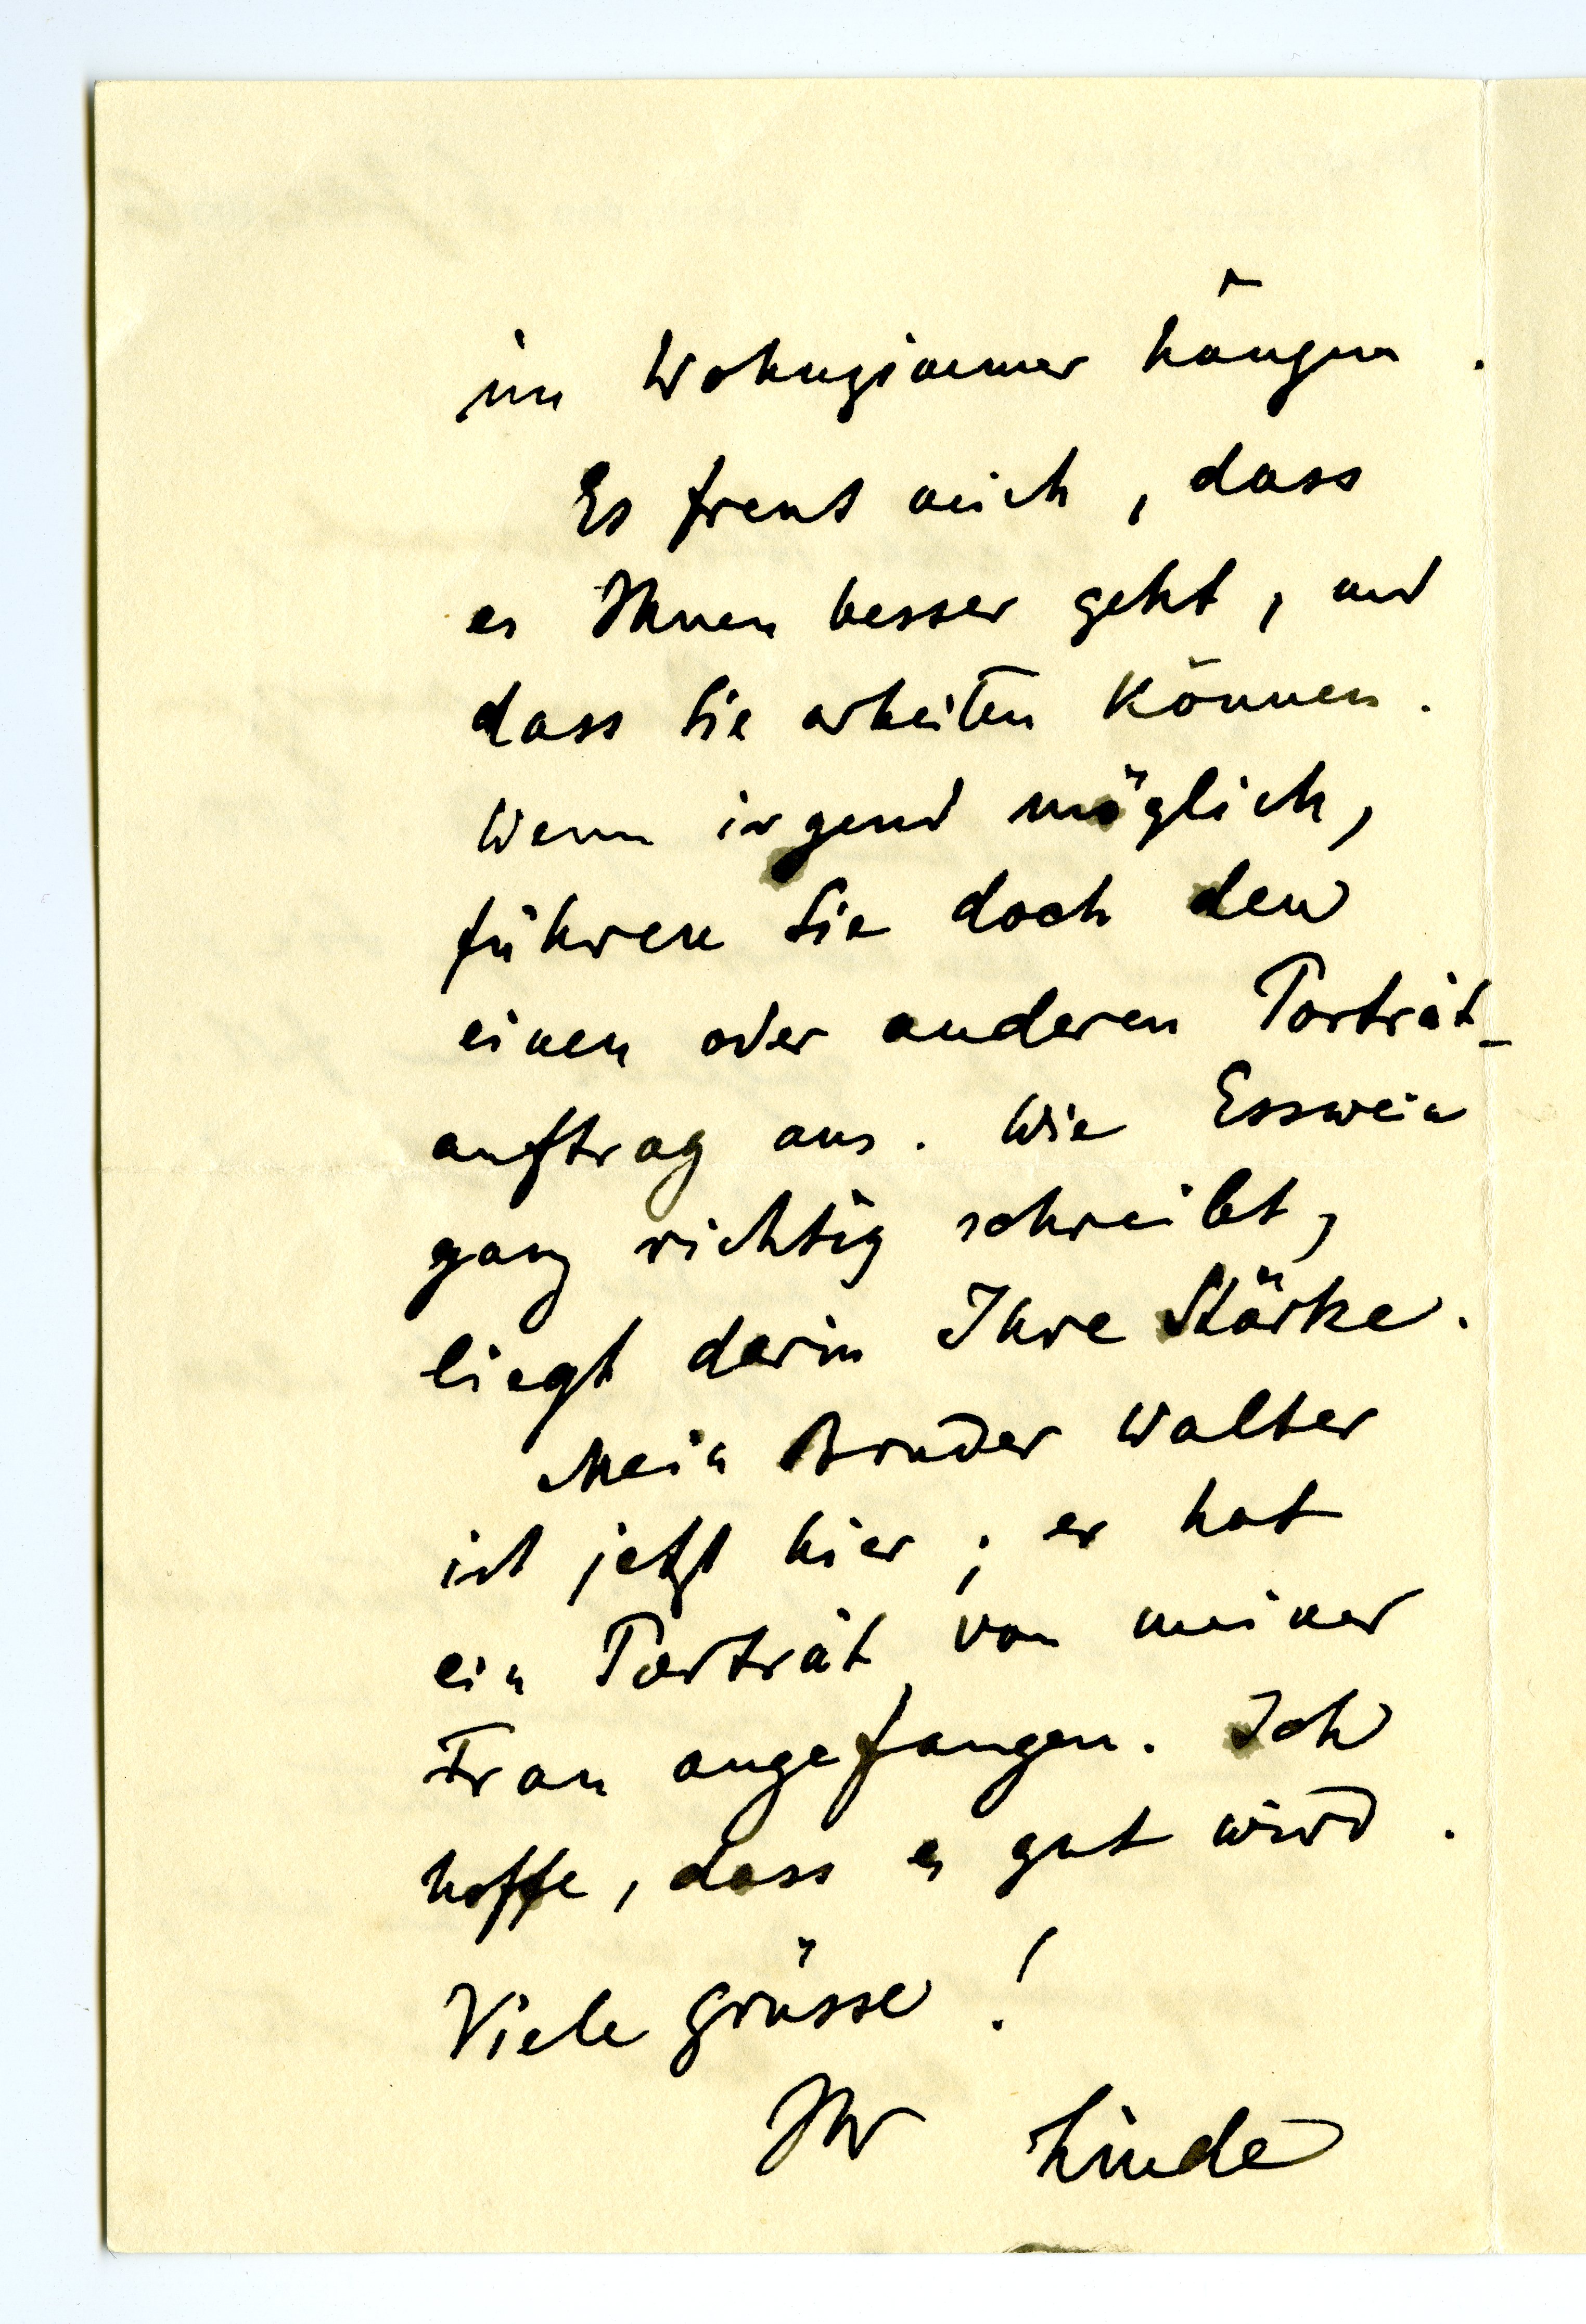 im Wohnzimmer hängen.
Es freut mich, dass
es Ihnen besser geht, und
dass Sie arbeiten können.
Wenn irgend möglich,
führen Sie doch den
einen oder anderen Porträt-
auftrag aus. Wie Esswein
ganz richtig schreibt,
liegt darin Ihre Stärke.
Mein Bruder Walter
ist jetzt hier; er hat
ein Porträt von meiner
Frau angefangen. Ich
hoffe, dass es gut wird.
Viele Grüsse!
Ihr Linde